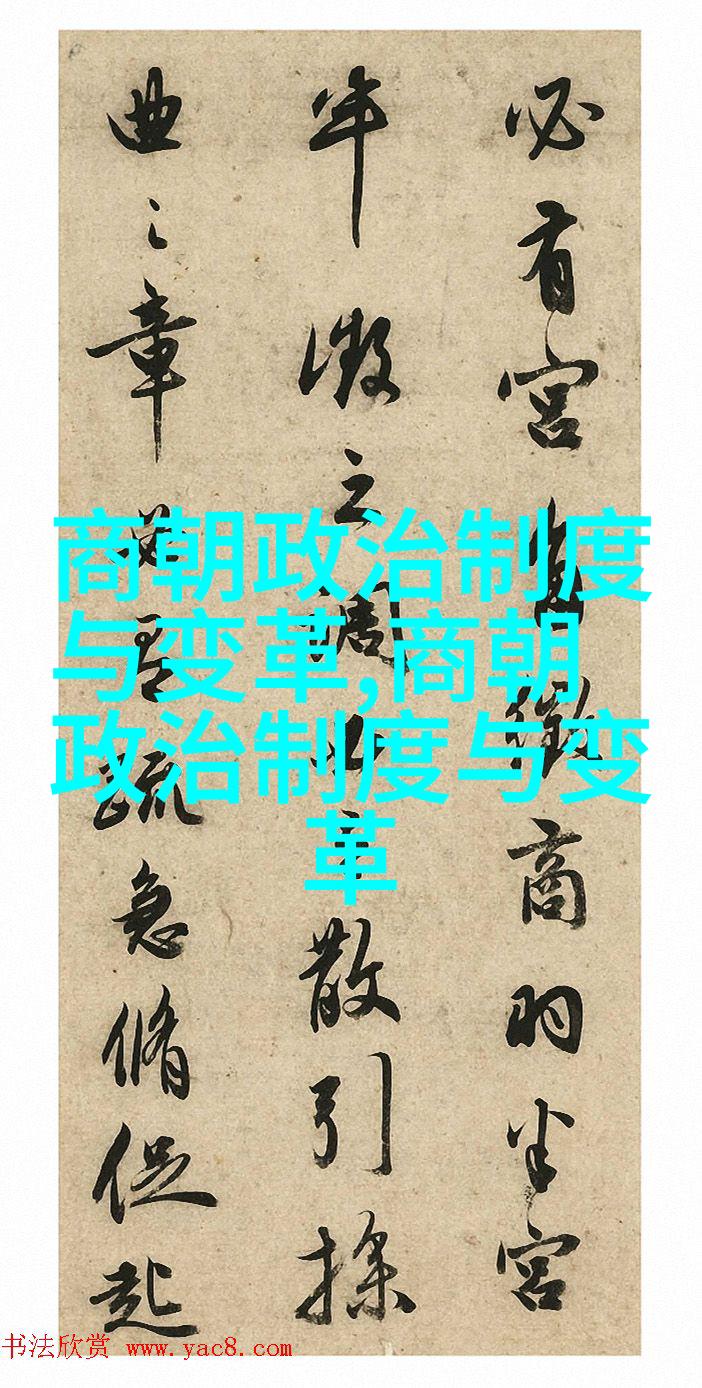 商朝政治制度
与变革,商朝
政治制度与变
革
必有宫角徵商羽半宫
半徵之調散引操
曲之章疏急脩促起
书法欣赏 www.yac8.com